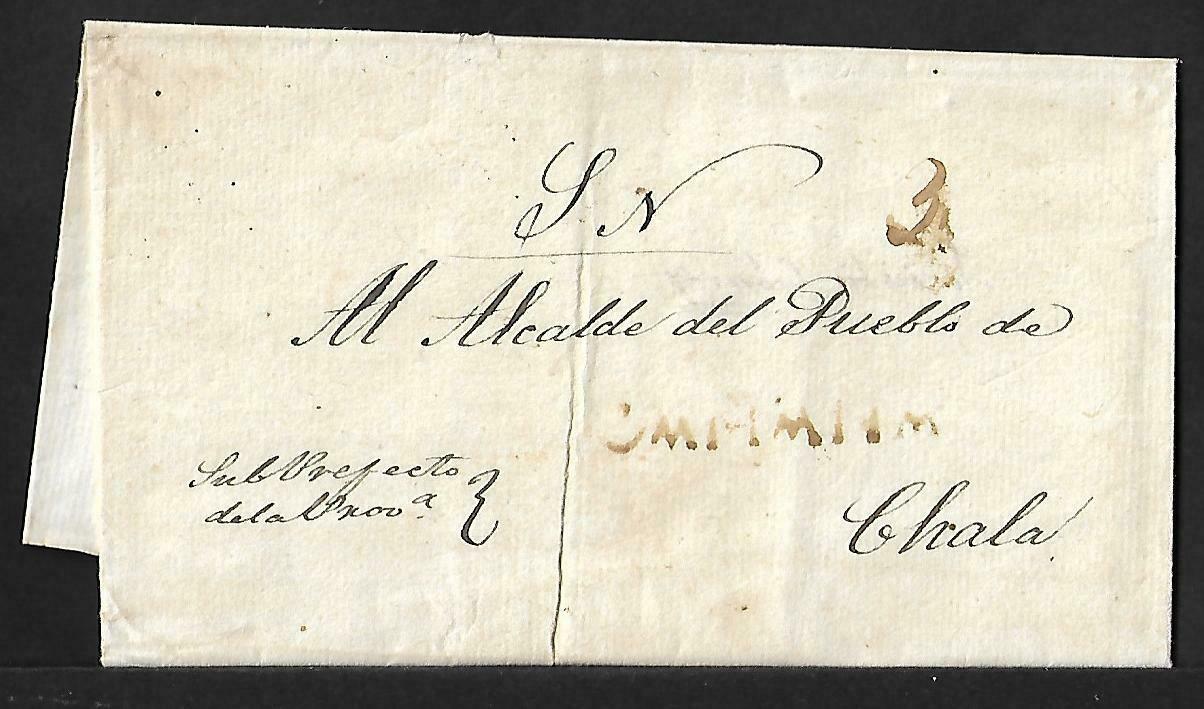 S. N
3
Al Alcalde del Pueblo de
Sub Prefecto
de la Prov.ª
Chala